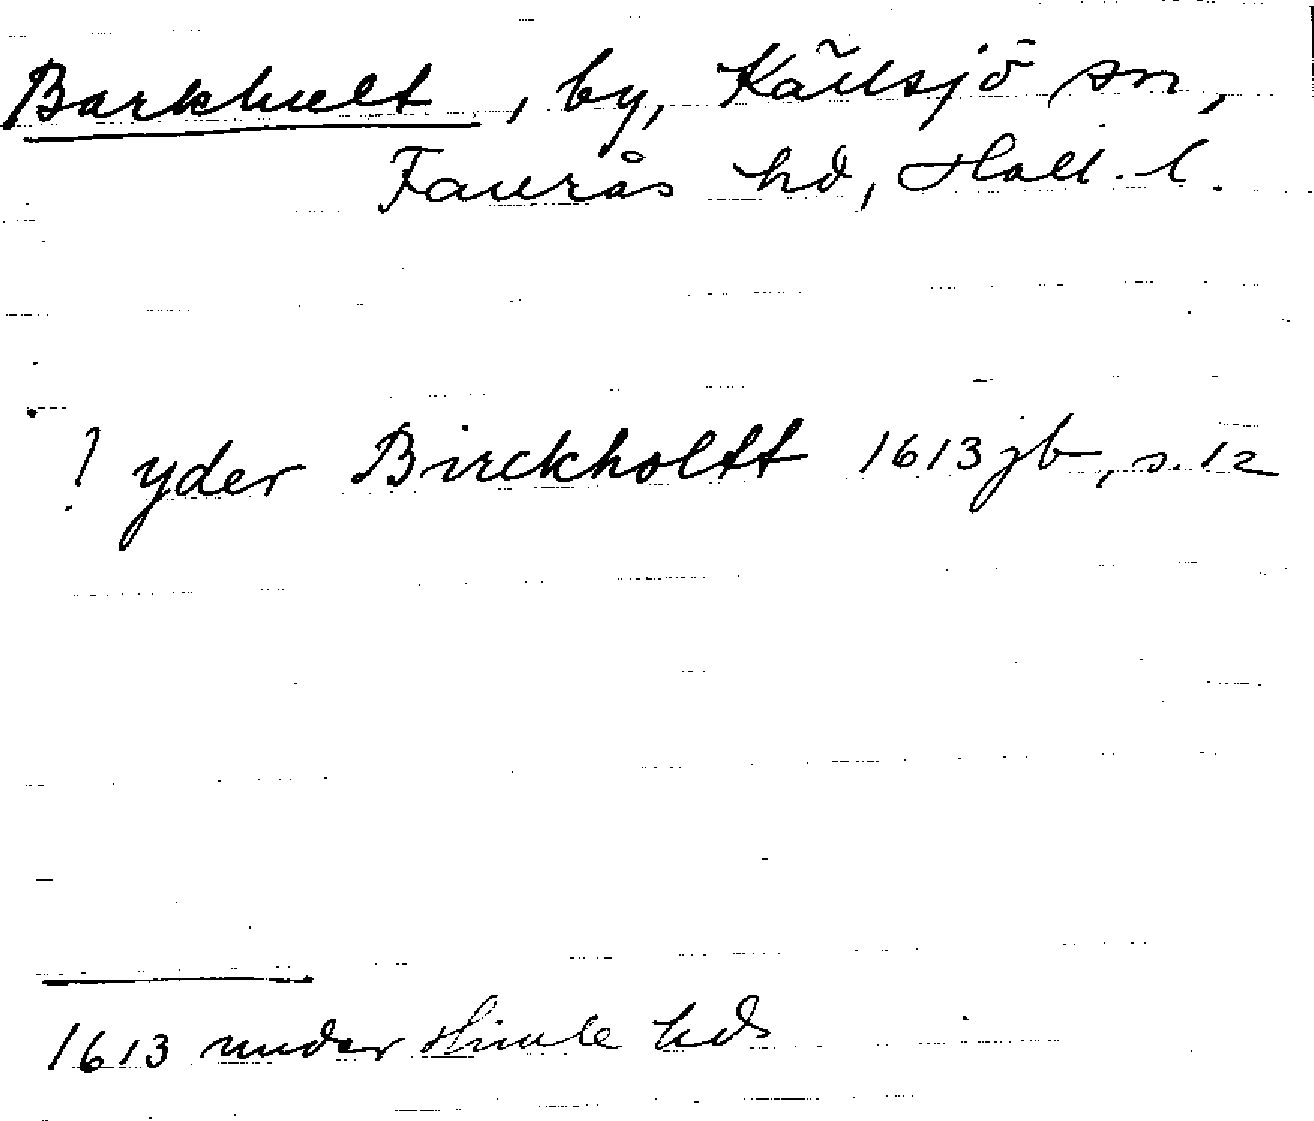 Barkhult, by, Källsjö sn,
Faurås hd, Hall. l.
? yder Birckholtt 1613 jb, s. 12
1613 under Himle hds